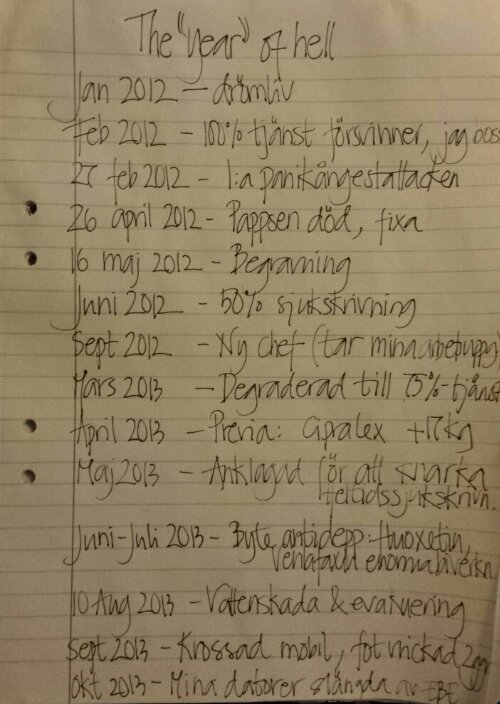 The "year" of hell
Jan 2012 – drömliv
Feb 2012 – 100% tjänst försvinner, jag
27 feb 2012 – 1:a panikångestattacken
26 april 2012 – Pappsen död, fixa
16 maj 2012 – Begravning
Juni 2012 – 50% sjukskrivning
Sept 2012 – Ny chef (tar mina arbetsuppg
Mars 2013 – Degraderad till 75%-tjänst
April 2013 – Previa: Cipralex +17kg
Maj 2013 – Anklagad för att
heltidssjukskrivn.
Juni-Juli 2013 – Byte antidepp: Fluoxetin,
Venlafaxin enorma biverkn
10 Aug 2013 – Vattenskada & evakuering
Sept 2013 – Krossad mobil, fot 2ggr
Okt 2013 – Mina datorer slängda av EBE